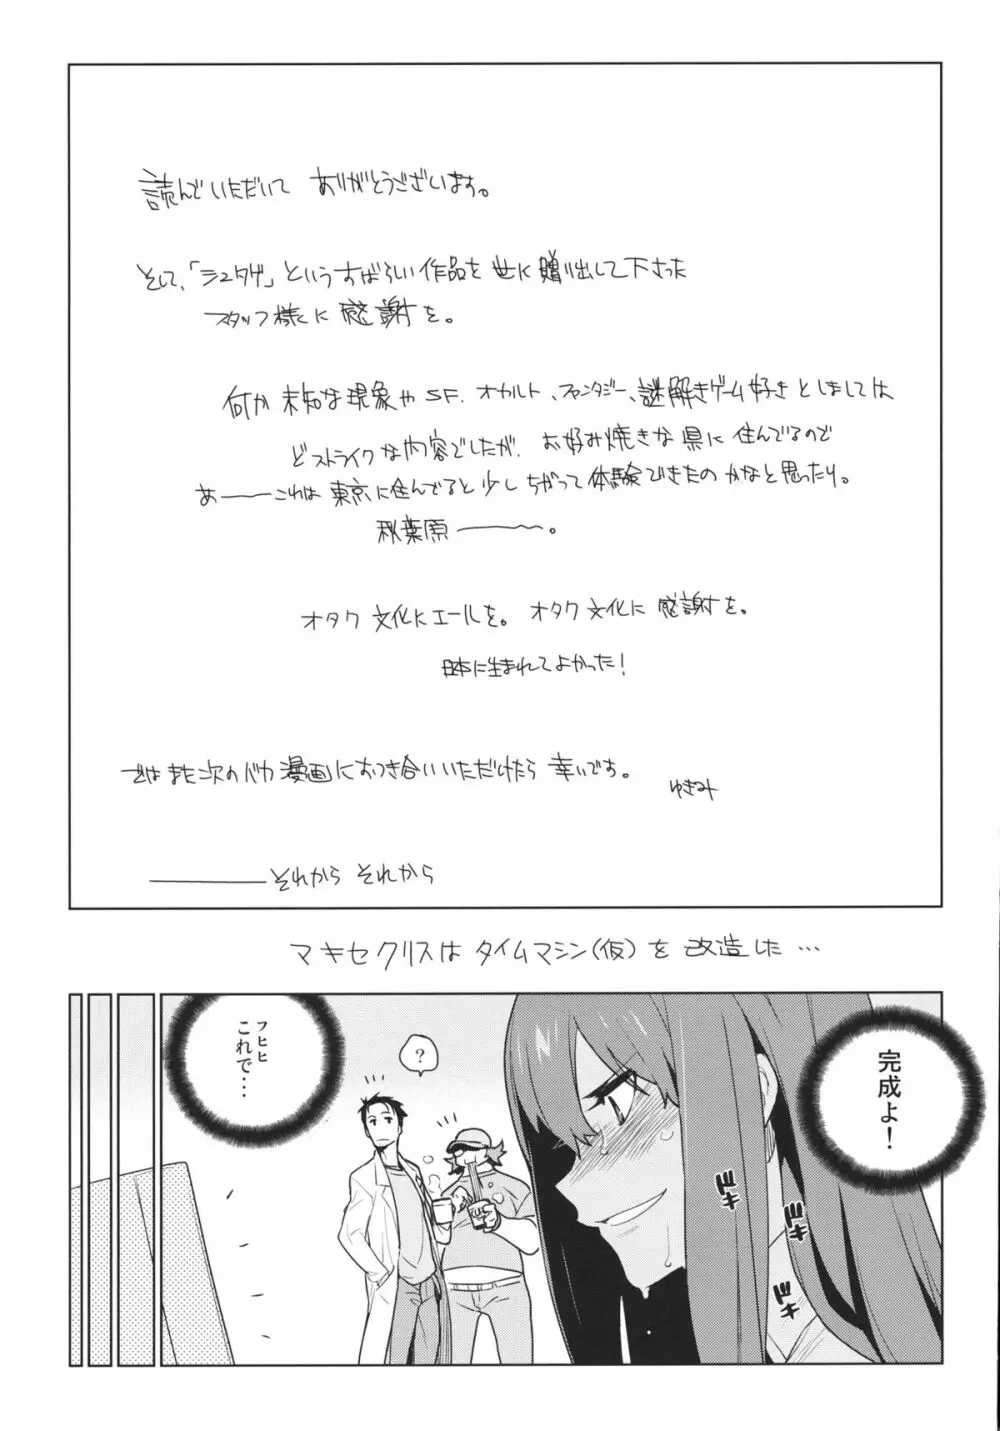 読んでいただいて ありがとうございます。
そして、「シュタゲ」というすばらしい作品を世に贈り出して下さった
スタッフ様に感謝を。
何か未知な現象やSF、オカルト、ファンタジー、謎解きゲーム好きとしましては
どストライクな内容でしたが、お好み焼きな県に住んでるので
あ――これは東京に住んでると少しちがって体験できたのかなと思ったり。
秋葉原――〜。
オタク文化にエールを。オタク文化に感謝を。
日本に生まれてよかった!
ではまた次のバカ漫画におつき合いいただけたら幸いです。
ゆきみ
――――それから それから
マキセクリスはタイムマシン(仮)を改造した…
完成よ!
?
フヒヒ
これで…
ドキ
ドキ
ドキ